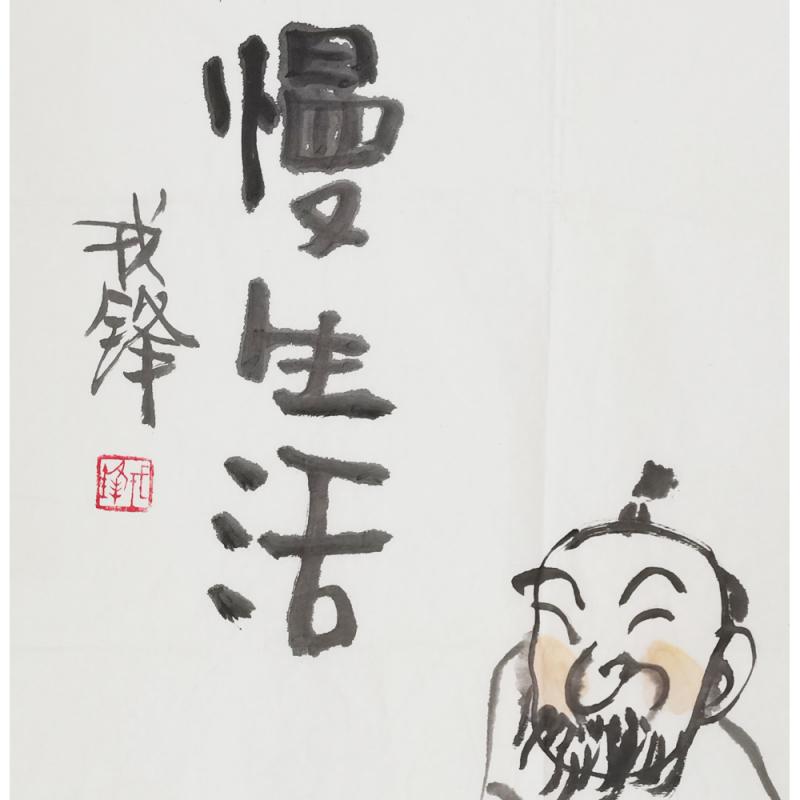 慢生活
戎锋